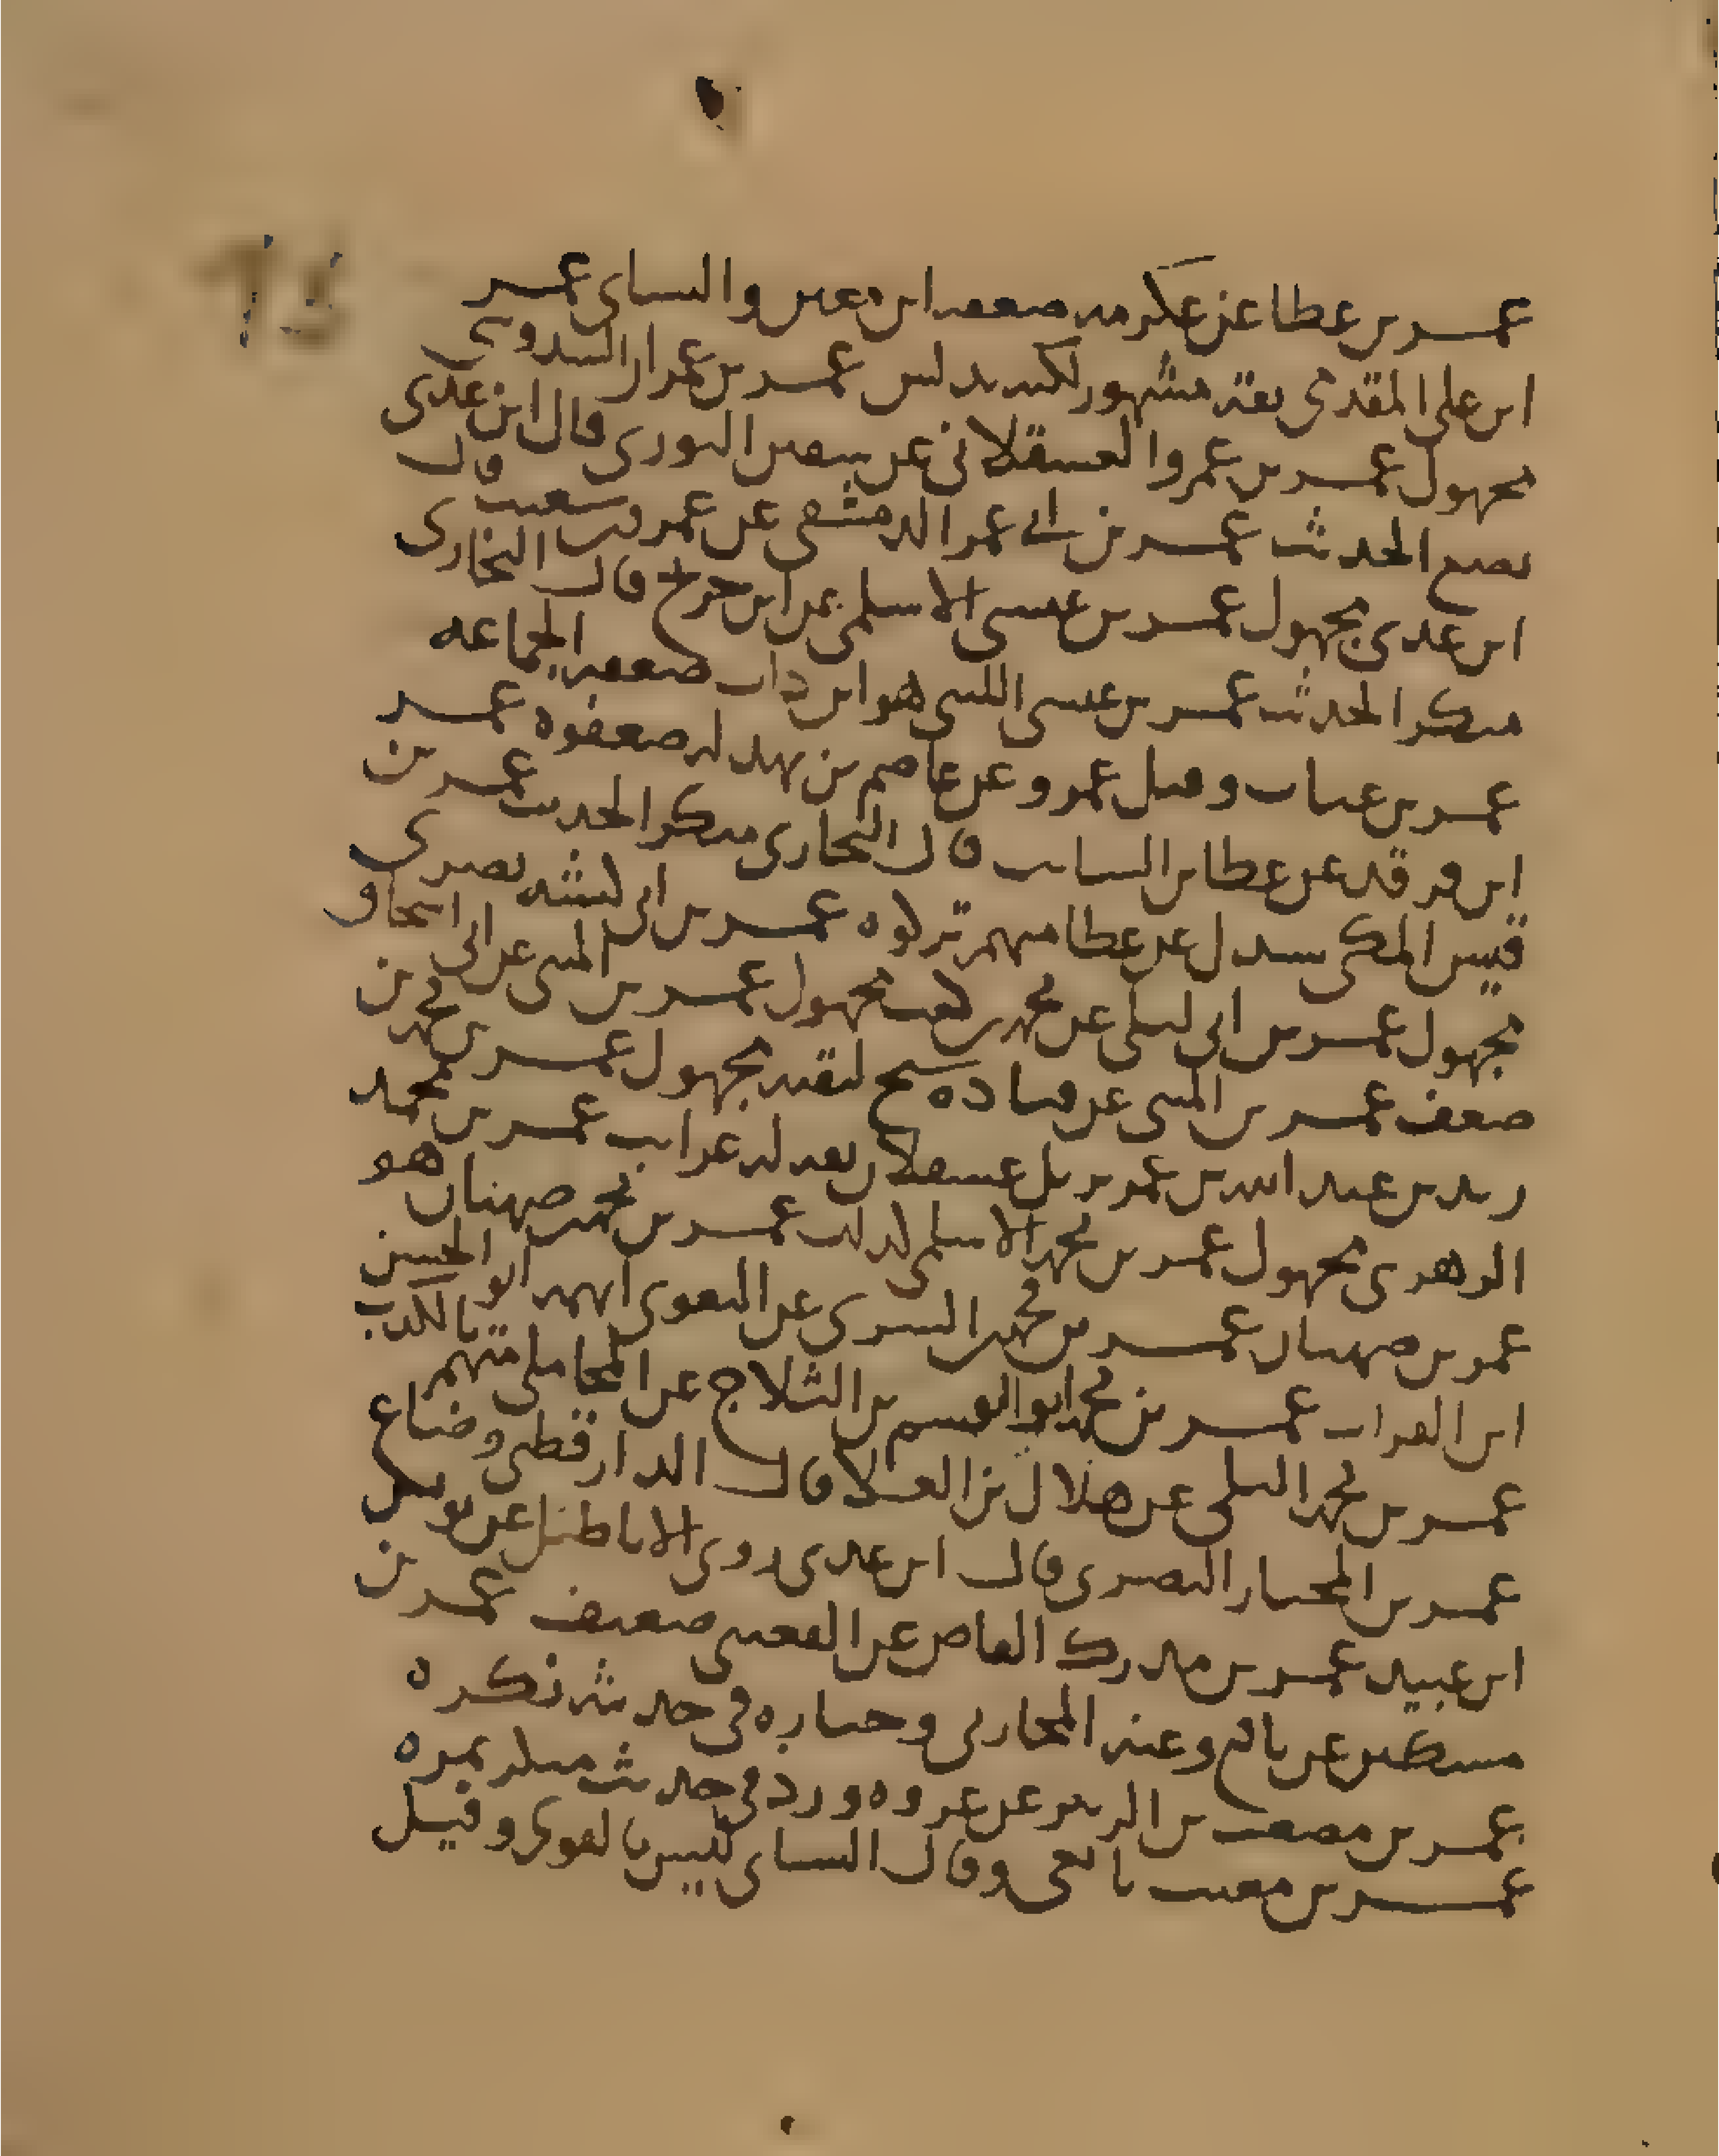 عمر بن عطا عن عكرمه ضعفه ابن معين والنساي عمر
ابن على المقدمى ثقة مشهور لكنه يدلس عمر بن عمران السدوسى
مجهول عمر بن عمرو العسقلانى عن سفين الثورى قال ابن عدى
يضع الحديث عمر بن ابى عمر الدمشقى عن عمرو بن شعيب قال
ابن عدى مجهول عمر بن عيسى الاسلمى عن ابن جريج قال البخارى
منكر الحديث عمر بن عيسى الليثى هو ابن داب ضعفه الجماعه
عمر بن غياث وقيل عمرو عن عاصم بن بهدله ضعفوه عمر
ابن فرقد عن عطا بن السايب قال البخارى منكر الحديث عمر بن
قيس المكى سندل عن عطا متهم تركوه عمر بن ابى بصرى
مجهول عمر بن ابى ليلى عن محمد بن كعب مجهول عمر بن المثنى عن ابى اسحاق
ضعف عمر بن المثنى عن قتاده شيخ لبقيه مجهول عمر بن محمد بن
زيد بن عبد الله بن عمر نزيل عسقلان ثقه له غرايب عمر بن محمد
الزهرى مجهول عمر بن محمد الاسلمى كذلك عمر بن محمد صهبان هو
عمر بن صهبان عمر بن محمد السرى عن البغوى اتهمه ابو الحسن
ابن الفرات عمر بن محمد ابو القسم بن الثلاج عن المحاملى متهم بالكذب
عمر بن محمد التلى عن هلال بن العلا قال الدارقطنى وضاع
عمر بن المختار البصرى قال ابن عدى روى الاباطيل عن يونس
ابن عبيد عمر بن مدرك القاص عن القعنبى ضعيف عمر بن
مسكين عن نافع وعنه المحاربى وجباره فى حديثه نكره
عمر بن مصعب بن الزبير عن عروه ورد فى حديث مبلد بمره
عمر بن معتب تابعى وقال النساى ليس بالقوى وقيل